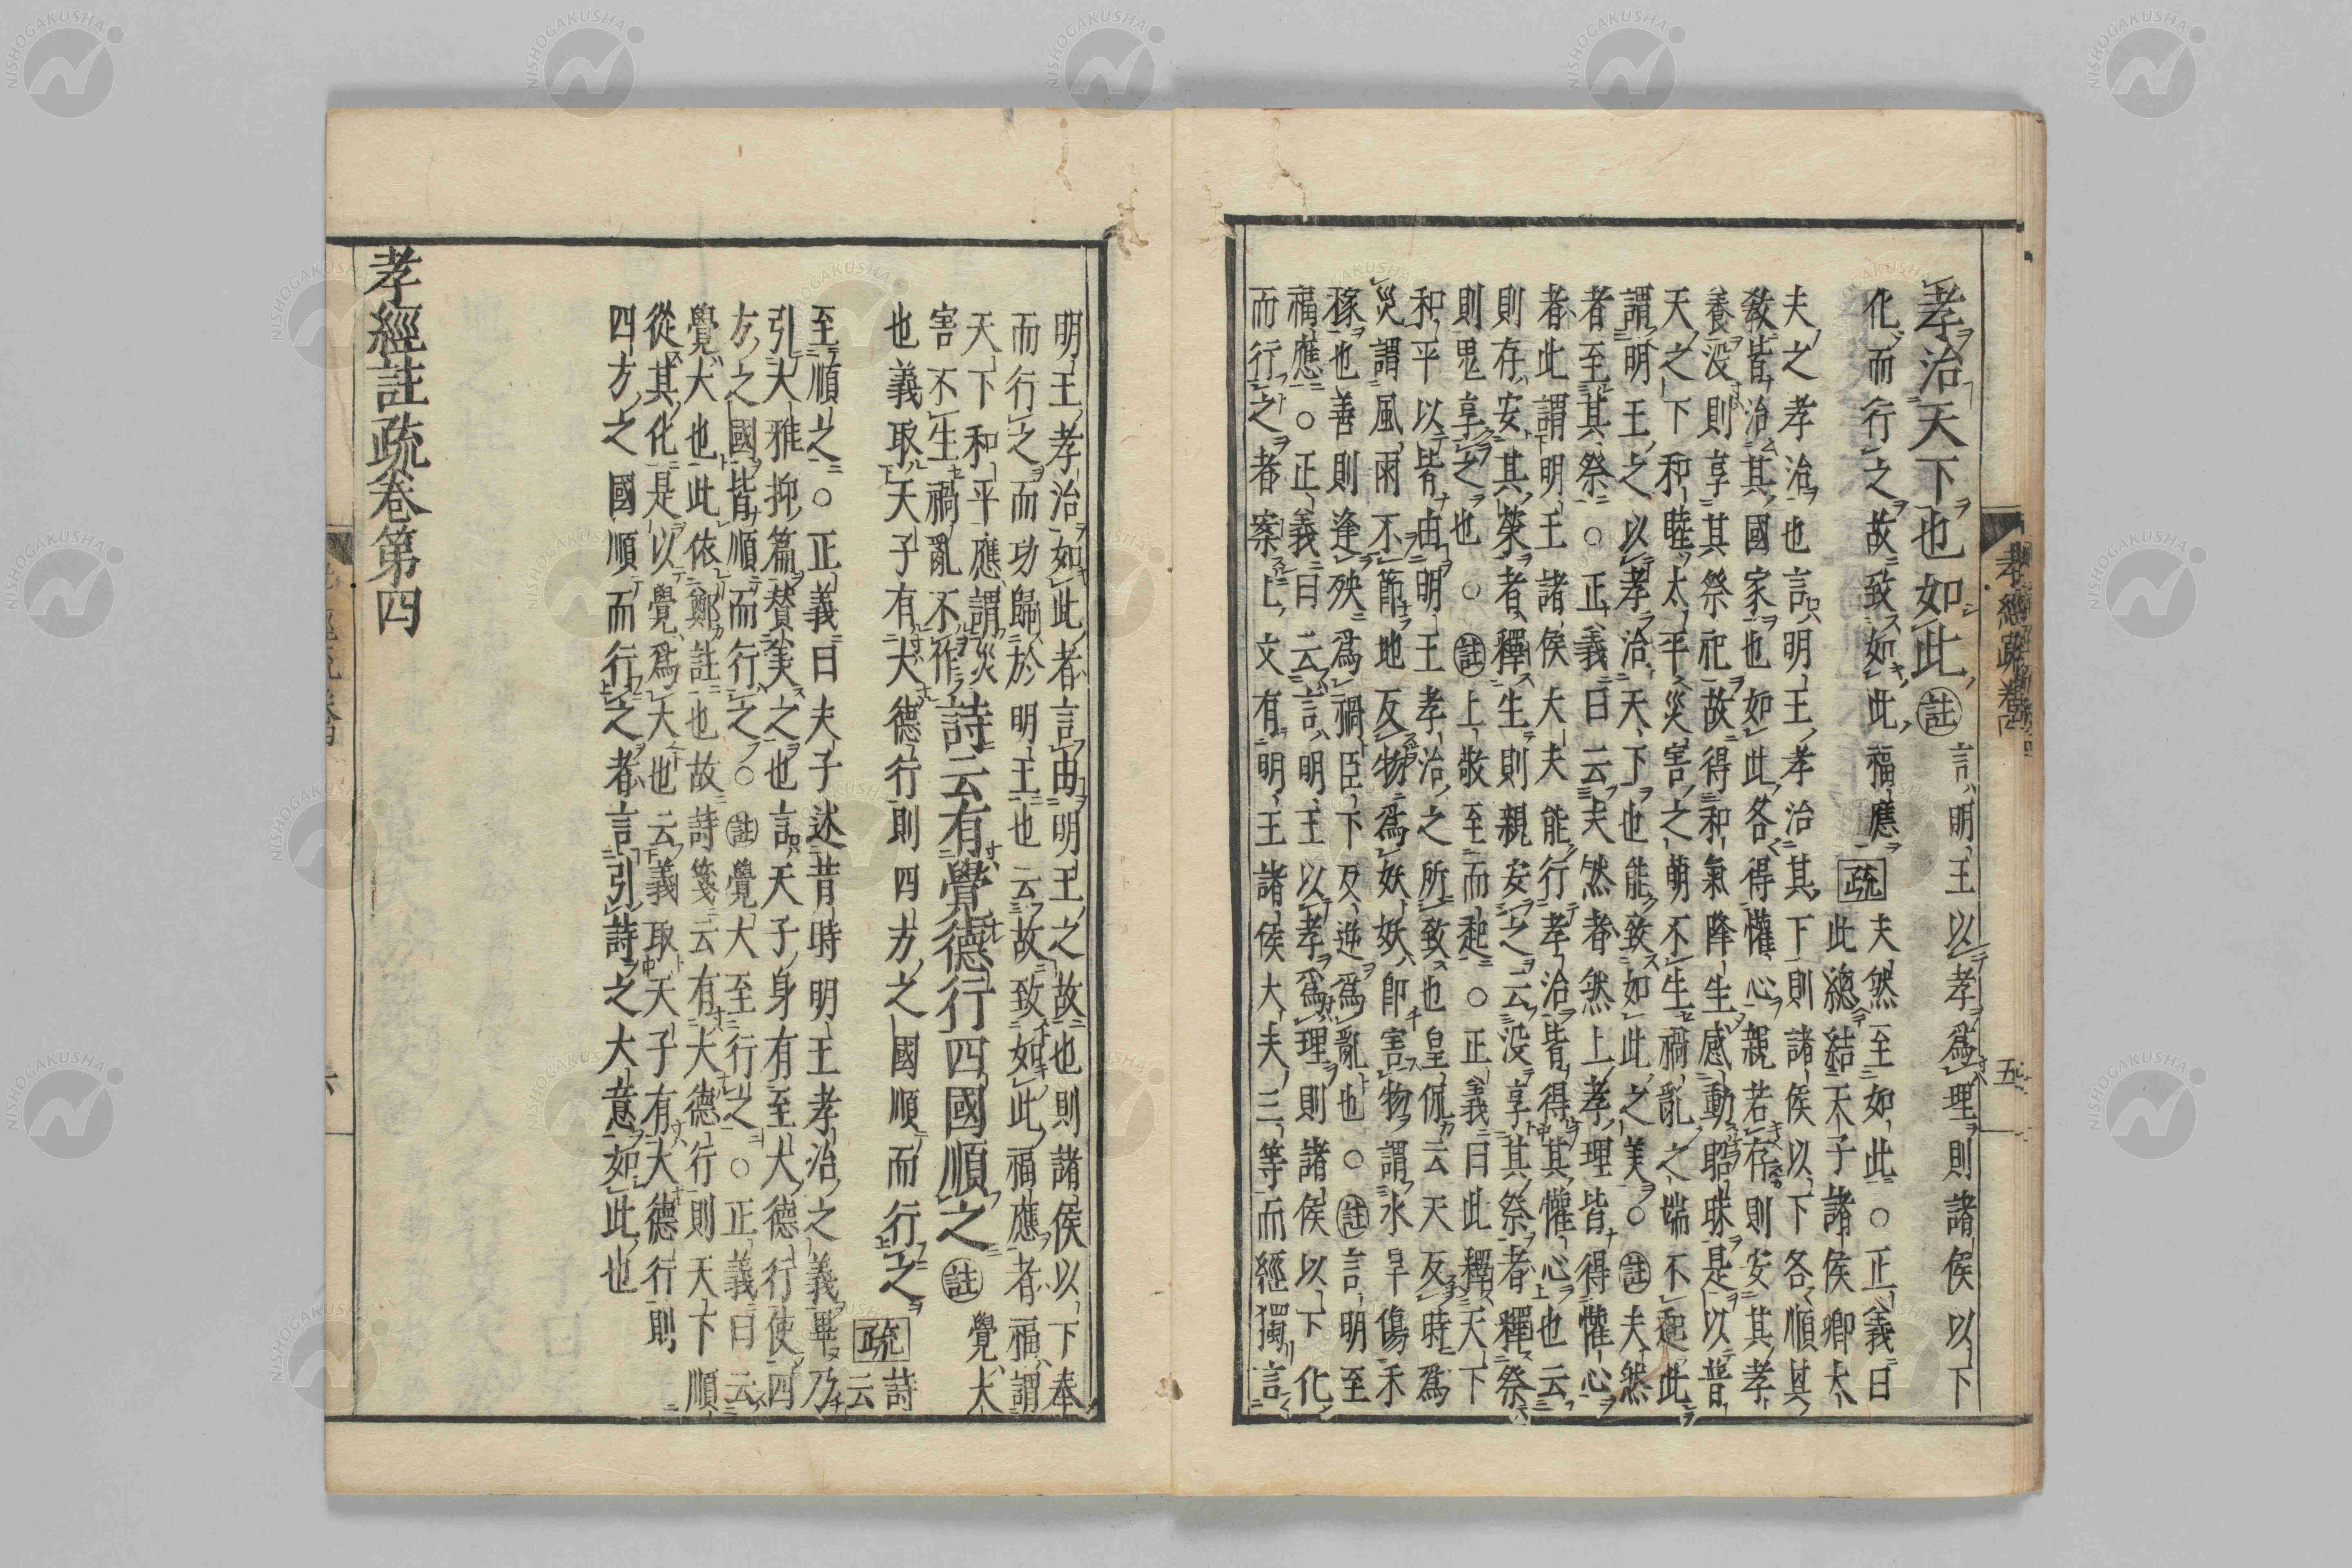 孝經疏卷四 五
孝治天下也如此 註 言明王以孝爲理則諸侯以下
化而行之故致如此福應 疏 夫然至如此○正義曰
此總結天子諸侯卿大
夫之孝治也言明王孝治其下則諸侯以下各順其
教皆治其國家也如此各得懽心親若存則安其孝
養没則享其祭祀故得和氣降生感動昭昧是以普
天之下和睦太平災害之萌不生禍亂之端不起此
謂明王之以孝治天下也能致如此之美○註夫然
者至其祭○正義曰云夫然者然上孝理皆得懽心
者此謂明王諸侯大夫能行孝治皆得其懽心也云
則存安其榮者釋生則親安之云没享其祭者釋祭
則鬼享之也○註上敬至而起○正義曰此釋天下
和平以皆由明王孝治之所致也皇侃云天反時爲
災謂風雨不節地反物爲妖妖即害物謂水旱傷禾
稼也善則逢殃爲禍臣下反逆爲亂也○註言明至
福應○正義曰云言明王以孝爲理則諸侯以下化
而行之者案上文有明王諸侯大夫三等而經獨言
明王孝治如此者言由明王之故也則諸侯以下奉
而行之而功歸於明王也云故致如此福應者福謂
天下和平應謂災
害不生禍亂不作 詩云有覺德行四國順之 註 覺大
也義取天子有大德行則四方之國順而行之 疏 詩
云
至順之○正義曰夫子述昔時明王孝治之義畢乃
引大雅抑篇贊美之也言天子身有至大德行使四
方之國皆順而行之○註覺大至行之○正義曰云
覺大也此依鄭註也故詩箋云有大德行則天下順
從其化是以覺爲大也云義取天子有大德行則
四方之國順而行之者言引詩之大意如此也
孝經註疏卷第四
NISHOGAKUSHA